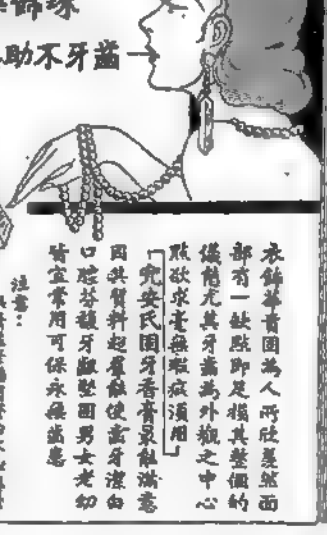 飾珠
助不牙齒
衣飾華貴固為人所欣羡然面
部有一缺點即足損其整個的
儀態尤其牙齒為外觀之中心
點欲求毫無瑕疵須用
兜安氏固牙香膏最能滿意
因其質料超羣能使齒牙潔白
口腔芬馥牙齦堅固男女老幼
皆宜常用可保永無齒患
注意：